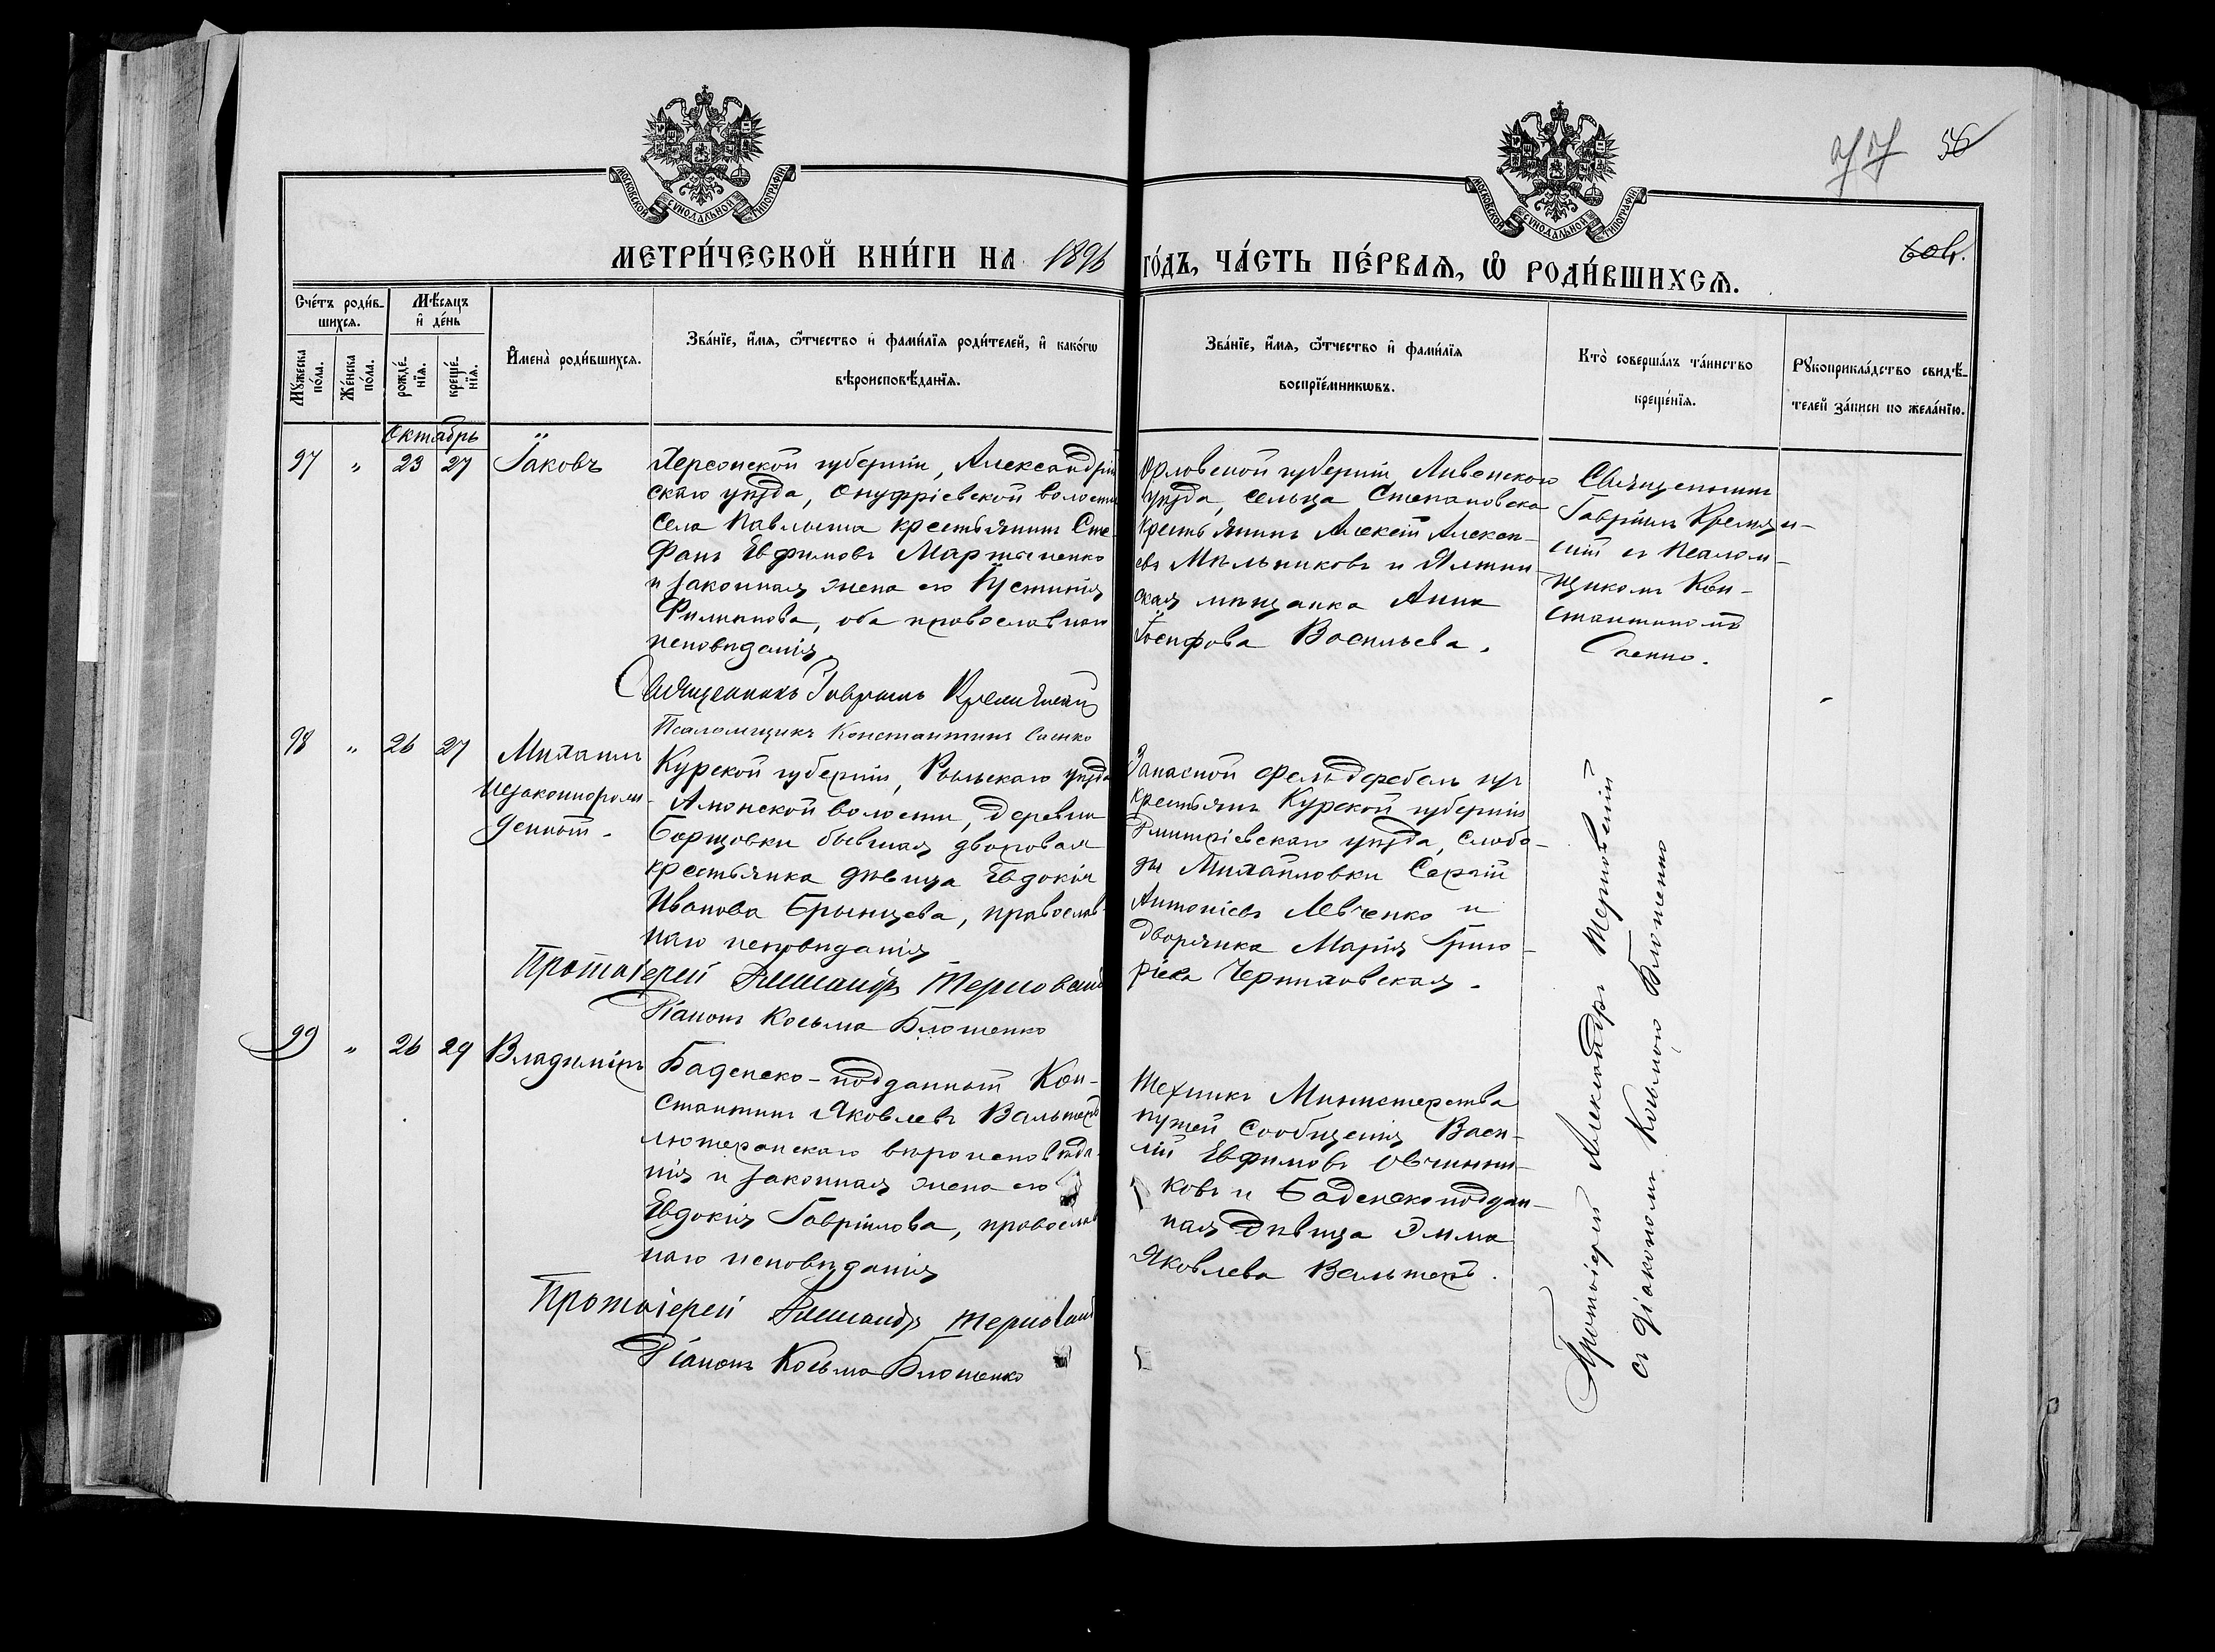 МОСКОВСКОЙ СѴНОДАЛЬНОЙ ТИПОГРАФІИ
МОСКОВСКОЙ СѴНОДАЛЬНОЙ ТИПОГРАФІИ
56
МЕТРИ́ЧЕСКОЙ КНИ́ГИ НА 1896 ГО́ДЪ, ЧА́СТЬ ПЕ́РВАѦ, Ѡ҆ РОДИ́ВШИХСѦ.
Сче́тъ роди́в-
шихсѧ.
Мѣ́сѧцъ
и҆ де́нь
Мꙋ́жеска
по́ла.
Же́нска
по́ла.
рожде́-
нїѧ.
креще́-
нїѧ.
И҆мена̀ роди́вшихсѧ.
Зва́нїе, и҆́мѧ, ѻ҆́тчество и҆ фами́лїѧ роди́телей, и҆ како́гѡ
вѣроисповѣ́данїѧ.
Зва́нїе, и҆́мѧ, ѻ҆́тчество и҆ фами́лїѧ
воспрїе́мникѡвъ.
Кто̀ соверша́лъ та́инство
креще́нїѧ.
Рꙋкоприкла́дство свидѣ́-
телей за́писи по жела́нїю.
Октябрь
97 " 23 27 Іаковъ
Херсонской губерніи, Александрій
скаго уѣзда, Онуфріевской волости
села Павлыша крестьянинъ Сте
фанъ Евфимовъ Мартыненко
и законная жена его Іустинія
Филиппова, оба православнаго
исповѣданія.
Священникъ Гавріилъ Кремянскій
Псаломщикъ Константинъ Саенко
Орловской губерніи Ливенского
уѣзда, сельца Степановска
крестьянинъ Алексѣй Алексѣ-
евъ Мѣльниковъ и Ялтин
ская мѣщанка Анна
Іосифова Васильева.
Священникъ
Гавріилъ Кремян-
скій съ Псалом-
щикомъ Кон-
стантиномъ
Саенко.
98 " 26 27 Михаилъ
незаконнорож-
денный.
Курской губерніи, Рыльскаго уѣзда
Амонской волости, деревни
Борщовки бывшая дворовая
крестьянка дѣвица Евдокія
Иванова Брынцева, православ-
наго исповѣданія
Протоіерей Александръ Терновскій
Діаконъ Косьма Блошенко
Запасной фельдфебель изъ
крестьянъ Курской губерніи
Дмитріевскаго уѣзда, слобо-
ды Михайловки Сергій
Антоніевъ Левченко и
дворянка Марія Григо-
ріева Черниховская.
99 " 26 29 Владиміръ
Баденско-подданный Кон-
стантинъ Яковлевъ Вальтеръ
лютеранскаго вѣроисповѣда-
нія и законная жена его
Евдокія Гавріилова, православ
наго исповѣданія
Протоіерей Александръ Терновскій
Діаконъ Косьма Блошенко
Техникъ Министерства
путей сообщенія Васи-
лій Евфимовъ Овчинни-
ковъ и Баденскоподдан-
ная дѣвица Эмма
Яковлева Вальтеръ.
Протоіерей Александръ Терновскій
съ діакономъ Косьмою Блошенко